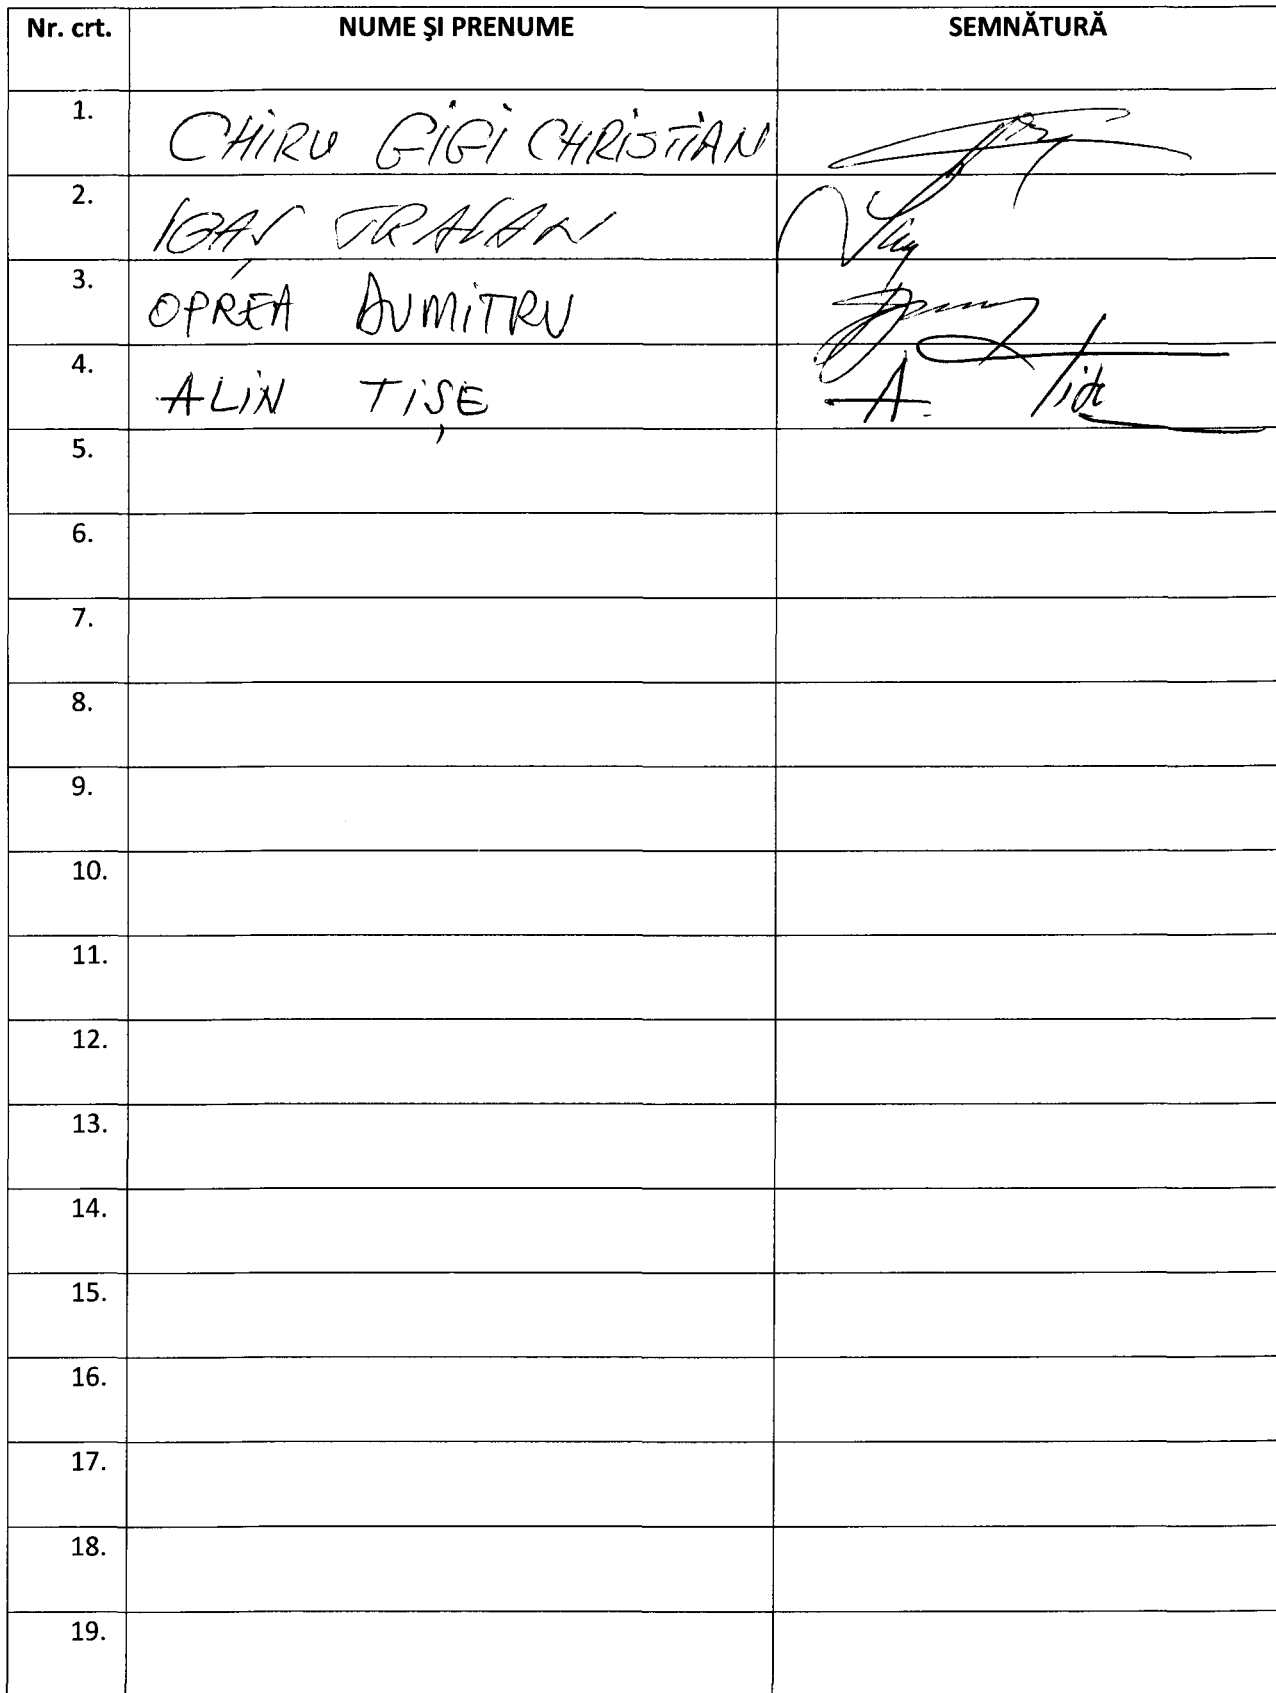 Nr. crt. NUME ŞI PRENUME SEMNĂTURĂ
1. CHIRU GIGI CHRISTIAN
2. IGAȘ TRAIAN
3. OPREA DUMITRU
4. ALIN TIȘE A. Tișe
5.
6.
7.
8.
9.
10.
11.
12.
13.
14.
15.
16.
17.
18.
19.